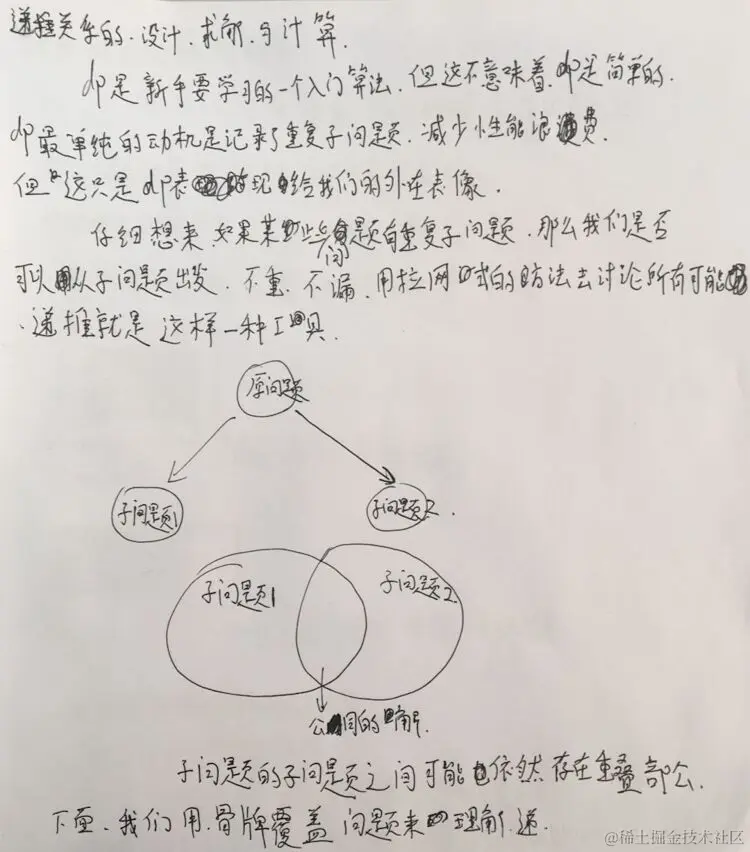 递推关系的.设计.求解.与计算.
dp是新手要学习的一个入门算法.但这不意味着.dp是简单的.
dp最单纯的动机是记录了重复子问题.减少性能浪费.
但这只是dp表现给我们的外在表像.
仔细想来.如果某些问题有重复子问题.那么我们是否
可以从子问题出发.不重.不漏.用拉网式的方法去讨论所有可能
.递推就是这样一种工具.
原问题
子问题1
子问题2.
子问题1
子问题2
公同的解.
子问题的子问题之间可能依然存在重叠部公.
下面.我们用.骨牌覆盖问题来理解.递.
@稀土掘金技术社区